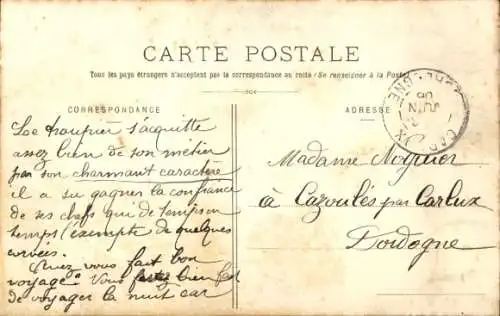 CARTE POSTALE
Tous les pays étrangers n'acceptent pas la correspondance au recto (Se renseigner à la Poste)
CORRESPONDANCE
Le troupier s'acquitte
assez bien de son métier
par son charmant caractère
il a su gagner la confiance
de ses chefs qui de temps en
temps l'exempte de quelques
corvées.
Avez vous fait bon
voyage? Vous bien fait
de voyager la nuit car
ADRESSE
Madame
à Cazoulès par Carlux
Dordogne
JUIN
06
DORDOGNE